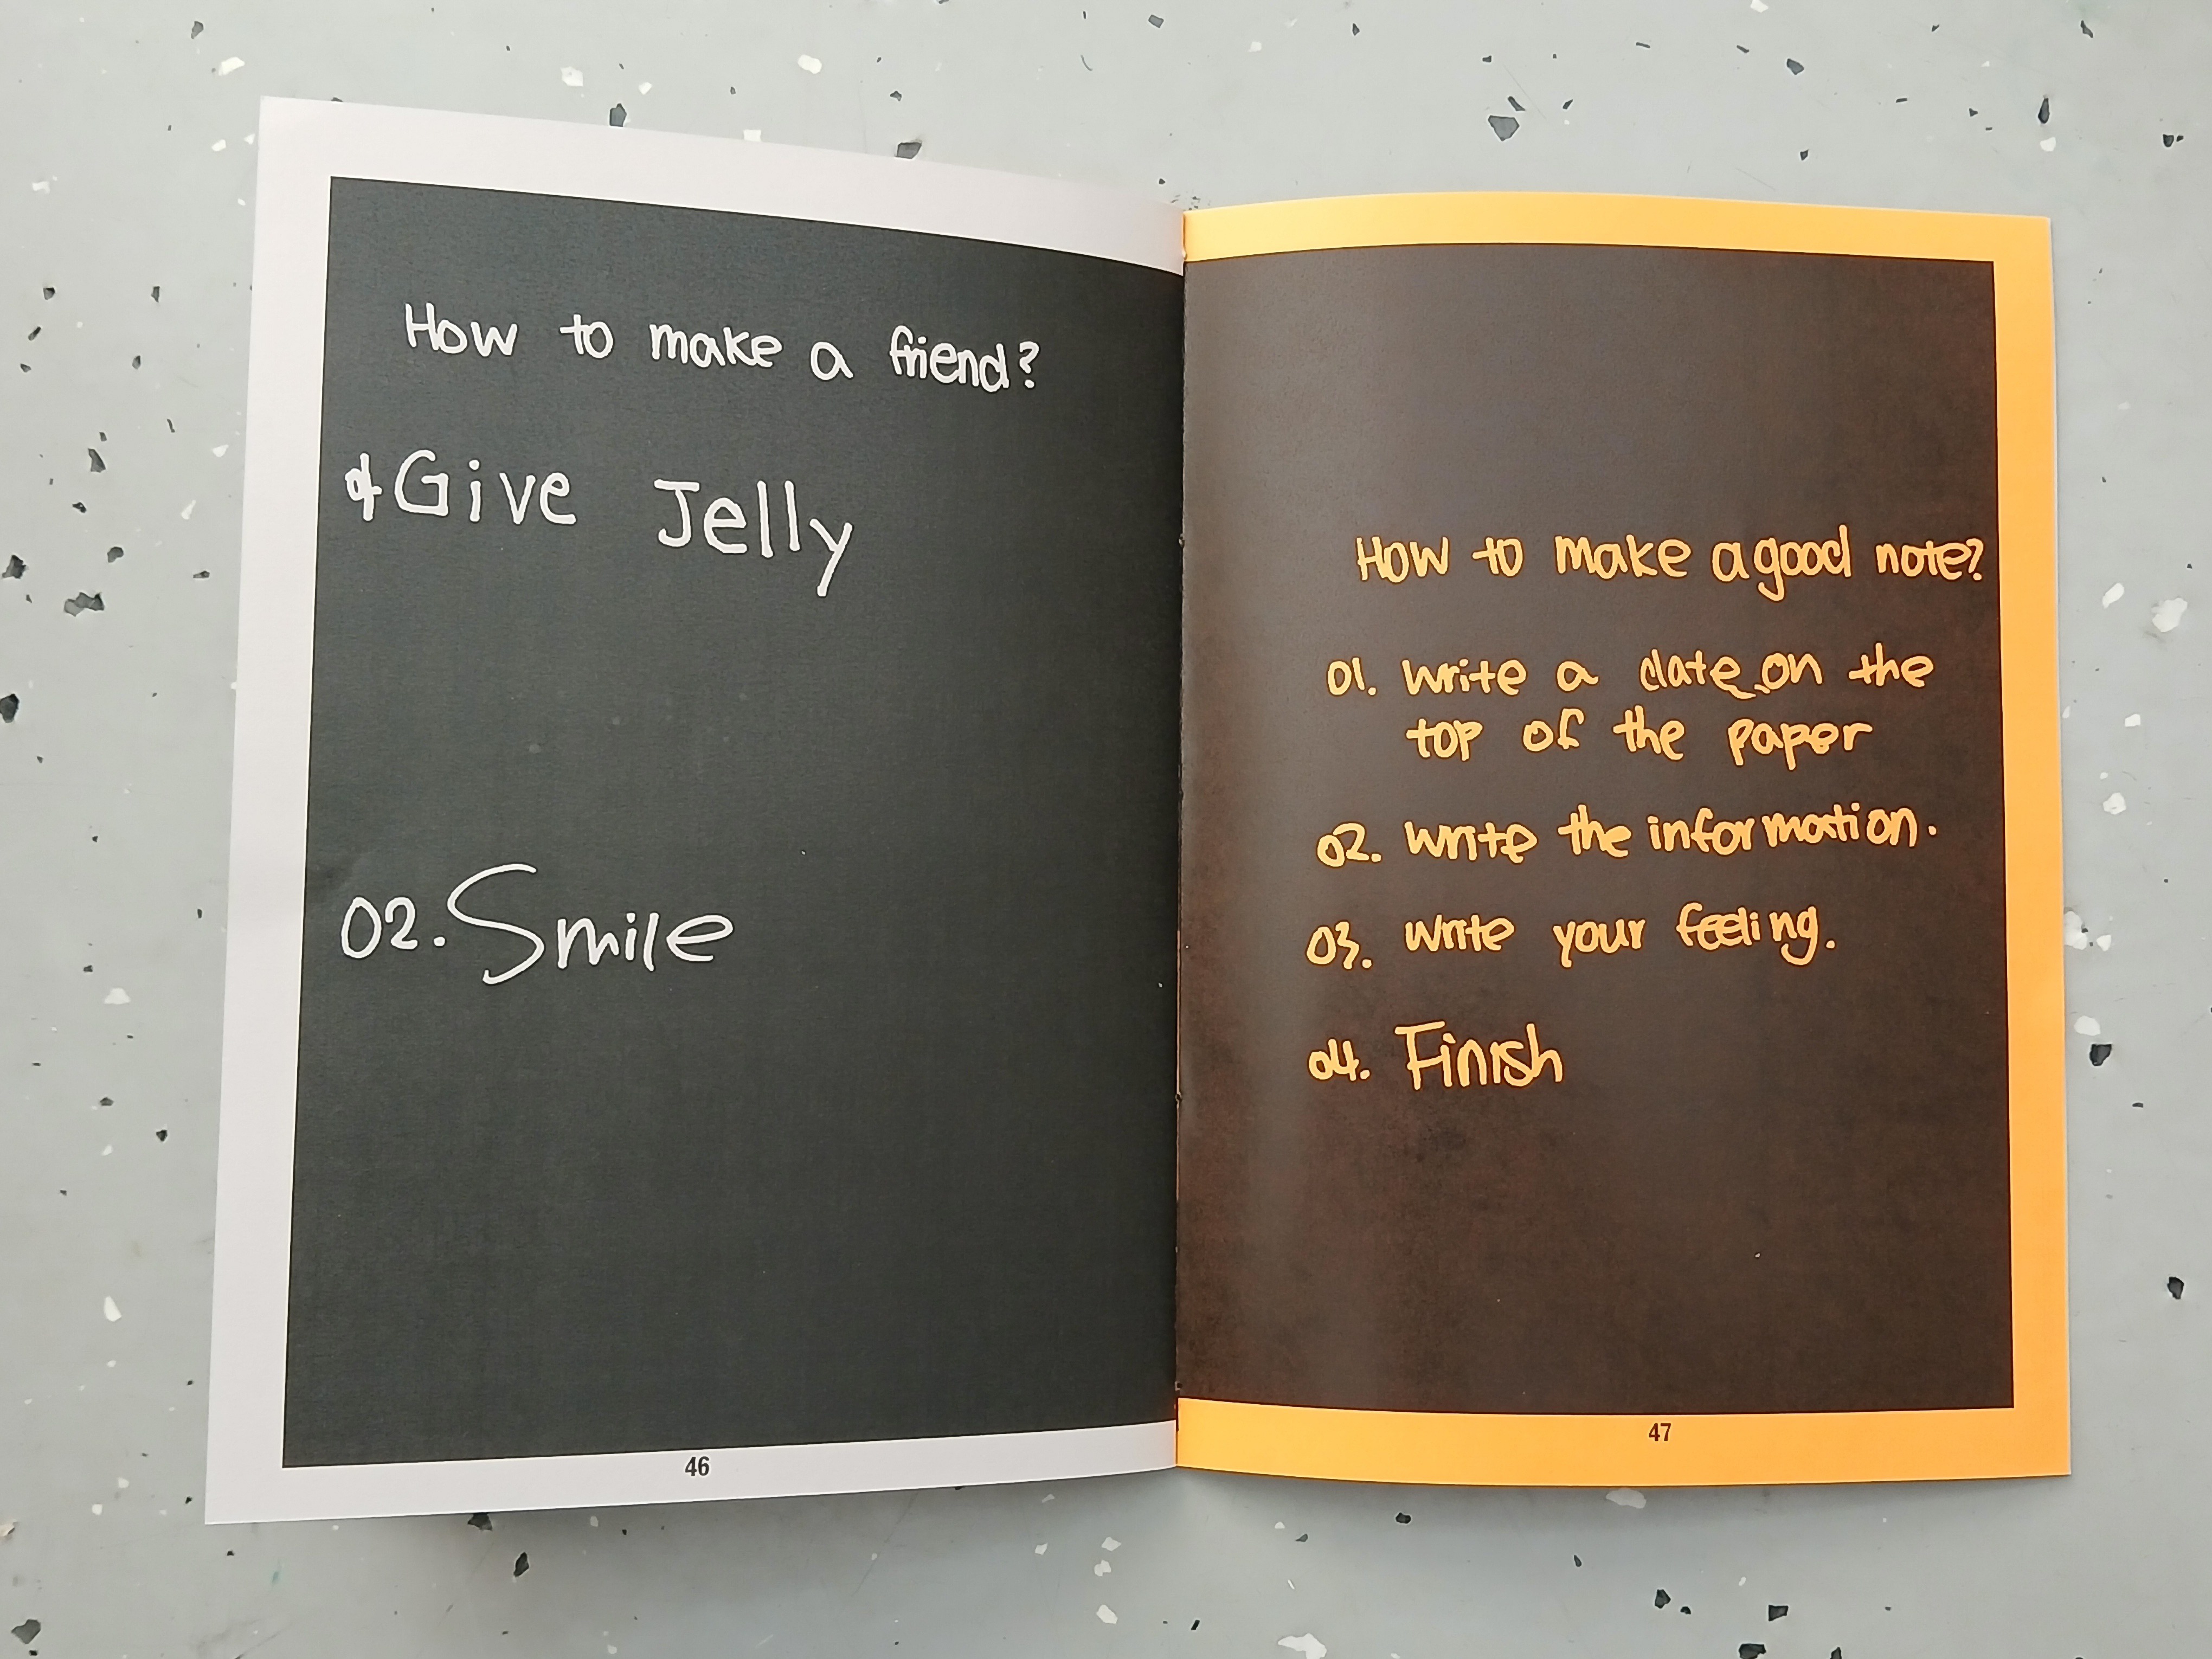 How to make a friend?
01 Give Jelly
02. Smile
46
How to make a good note?
01. Write a date on the
top of the paper
02. Write the information.
03. Write your feeling.
04. Finish
47